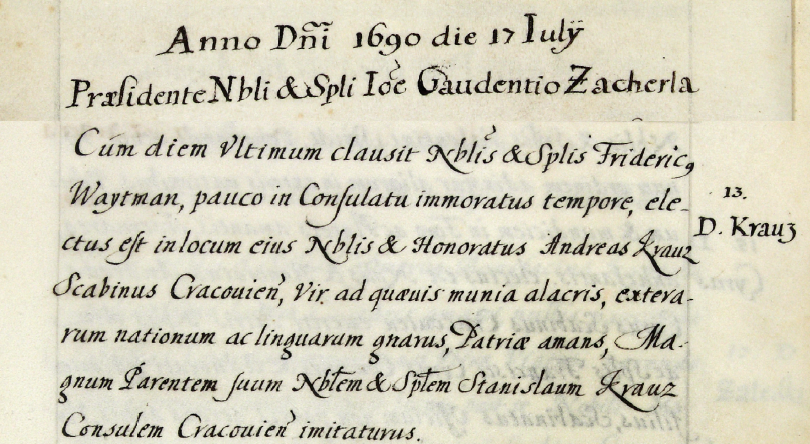 Anno Dñi 1690 die 17 Iulÿ
Præsidente Nbli & Spli Ioẽ Gaudentio Zacherla
Cúm diem Vltimum clausit Nblis & Splis Frideric9
Waytman, pauco in Consulatu immoratus tempore, ele-
ctus est in locum eius Nblis & Honoratus Andreas Krauz
13.
D. Krauz
Scabinus Cracovień, Vir ad quævis munia alacris, extera-
rum nationum ac linguarum gnarus, Patriæ amans, Ma-
gnum Parentem suum Nblẽm & Splẽm Stanislaum Krauz
Consulem Cracovień imitaturus.